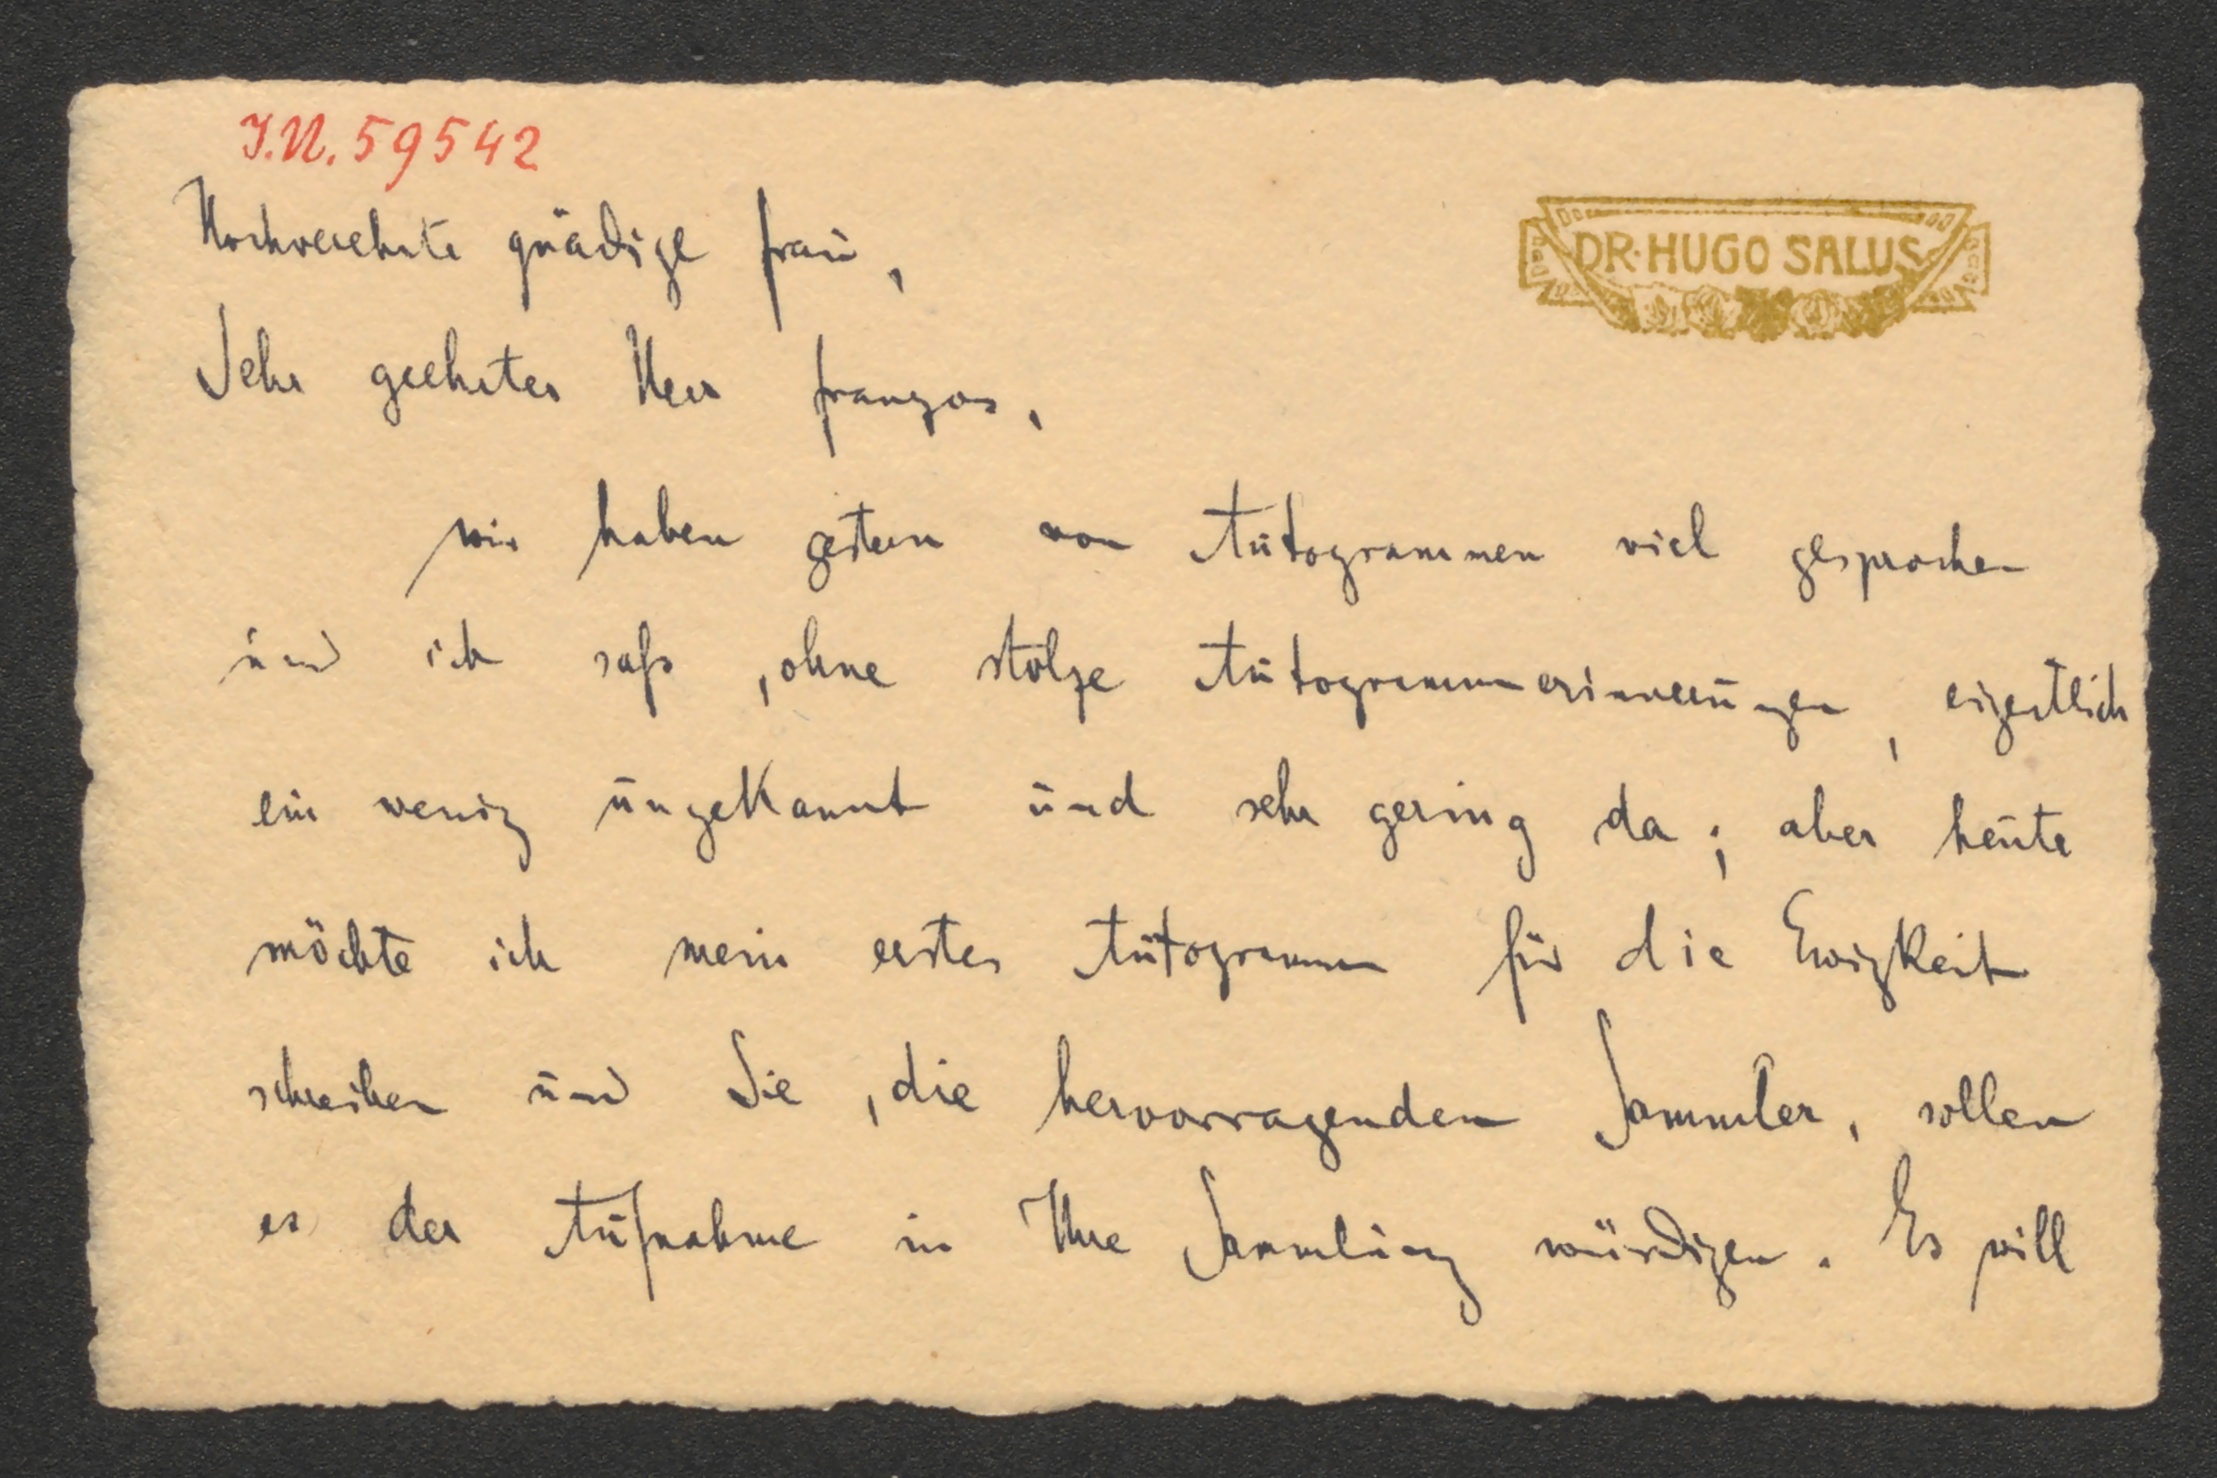 I.N. 59542
DR. HUGO SALUS
Hochverehrte gnädige Frau,
Sehr geehrter Herr Franzos,
wir haben gestern von Autogrammen viel gesprochen
und ich saß, ohne stolze Autogrammerinnerungen, eigentlich
ein wenig ungekannt und sehr gering da; aber heute
möchte ich mein erstes Autogramm für die Ewigkeit
schreiben und Sie, die hervorragenden Sammler, sollen
es der Aufnahme in Ihre Sammlung würdigen. Es will